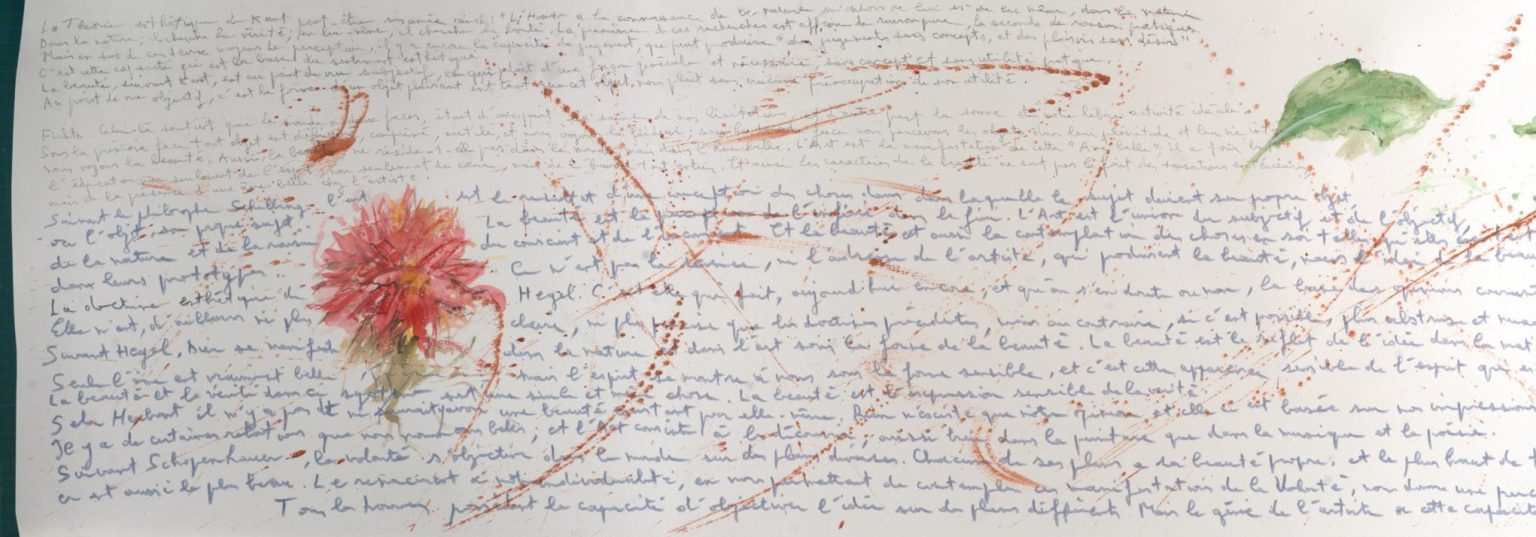 La Théorie esthétique de Kant peut-être résumée ainsi: "L'Homme a la connaissance de la nature en dehors de lui et de lui même, dans la nature
Dans la nature, il cherche la vérité; en lui-même, il cherche la bonté. La première de ces recherches est affaire de raison pure, la seconde de raison pratique
Mais en sus de ces deux moyens de perception, il y a encore la capacité de jugement, qui peut produire "des jugements sans concepts, et des plaisirs sans désirs"
C'est cette capacité qui est la base du sentiment esthétique.
La beauté, suivant Kant, est au point de vue subjectif, ce qui plait d'une façon générale et nécessaire, sans concept et sans utilité pratique.
Au point de vue objectif, c'est la forme d'un objet plaisant en tant que cet objet nous plait sans aucune préoccupation de son utilité
Fichte. le monde a deux faces, étant d'une part la somme de nos limitations et d'autre part la somme de notre libre activité idéale
Sous la première face tout objet est défiguré, comprimé, mutilé, et nous voyons la laideur; sous la seconde face nous percevons les objets dans leur plénitude et leur vie
nous voyons la beauté. Aussi la beauté ne réside-t-elle pas dans le monde mais dans l'âme belle. L'Art est la manifestation de cette "Âme belle", il a pour but
l'éducation non seulement de l'esprit, non seulement du cœur, mais de l'homme tout entier. Et aussi les caractères de la beauté ne sont pas le fait des sensations extérieures
mais de la présence d'une âme belle chez l'artiste.
Suivant le philosophe Schelling, l'art est le résultat d'une conception des choses dans laquelle le sujet devient son propre objet
ou l'objet son propre sujet. La beauté est la perception de l'infini dans le fini. L'Art est l'union du subjectif et de l'objectif,
de la nature et de la raison du conscient et de l'inconscient. Et la beauté est aussi la contemplation des choses en soi telles qu'elles existent
dans leurs prototypes. Ce n'est pas la science, ni l'adresse de l'artiste, qui produisent la beauté, mais l'idée de la beauté
La doctrine esthétique de Hegel. C'est elle qui fait, aujourd'hui encore, et qu'on s'en doute ou non, la base des opinions
Elle n'est, d'ailleurs ni plus claire, ni plus précise que les doctrines précédentes, mais au contraire, si c'est possible, plus abstraite et
Suivant Hegel, Dieu se manifeste dans la nature et dans l'art sous la forme de la beauté. La beauté est le reflet de l'idée dans la
Seule l'âme est vraiment belle, mais l'esprit se montre à nous sous la forme sensible, et c'est cette apparence sensible de l'esprit qui
La beauté et la vérité dans ce système sont une seule et même chose. La beauté est l'expression sensible de la vérité.
Selon Herbart il n'y a pas et ne saurait y avoir une beauté existant par elle-même. Rien n'existe que notre opinion et elle-ci est basée sur nos impressions
Il y a de certaines relations que nous nommons belles, et l'Art consiste à les découvrir, aussi bien dans la peinture que dans la musique et la poésie.
Suivant Schopenhauer, la volonté s'objective dans le monde sur des plans divers. Chacun de ses plans a sa beauté propre, et le plus haut de
en est aussi le plus beau. Le renoncement à notre individualité, en nous permettant de contempler ces manifestations de la Volonté, nous donne une
Tous les hommes possèdent la capacité d'objectiver l'idée sur des plans différents. Mais le génie de l'artiste a cette capacité